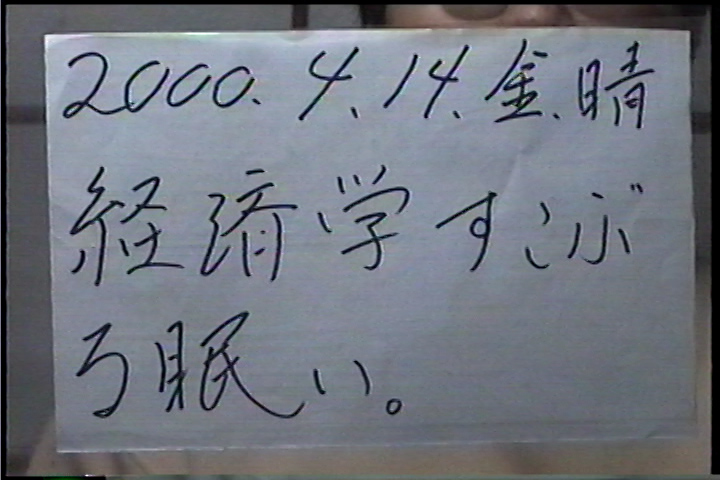 2000.4.14.金.晴
経済学すこぶ
る眠い。